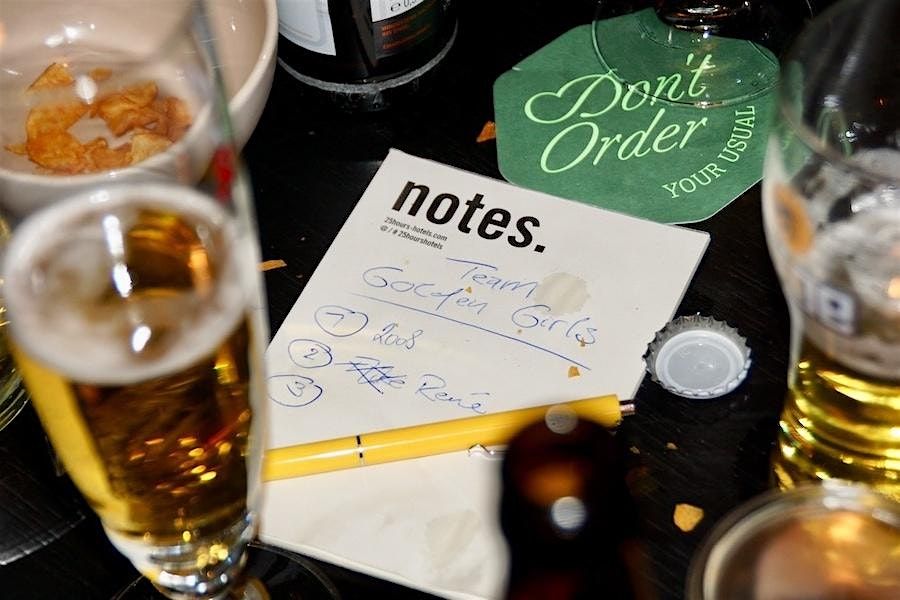 Don't
Order
YOUR USUAL
notes.
25hours-hotels.com
@ / # 25hourshotels
Team
Golden Girls
1 2008
2 René
3